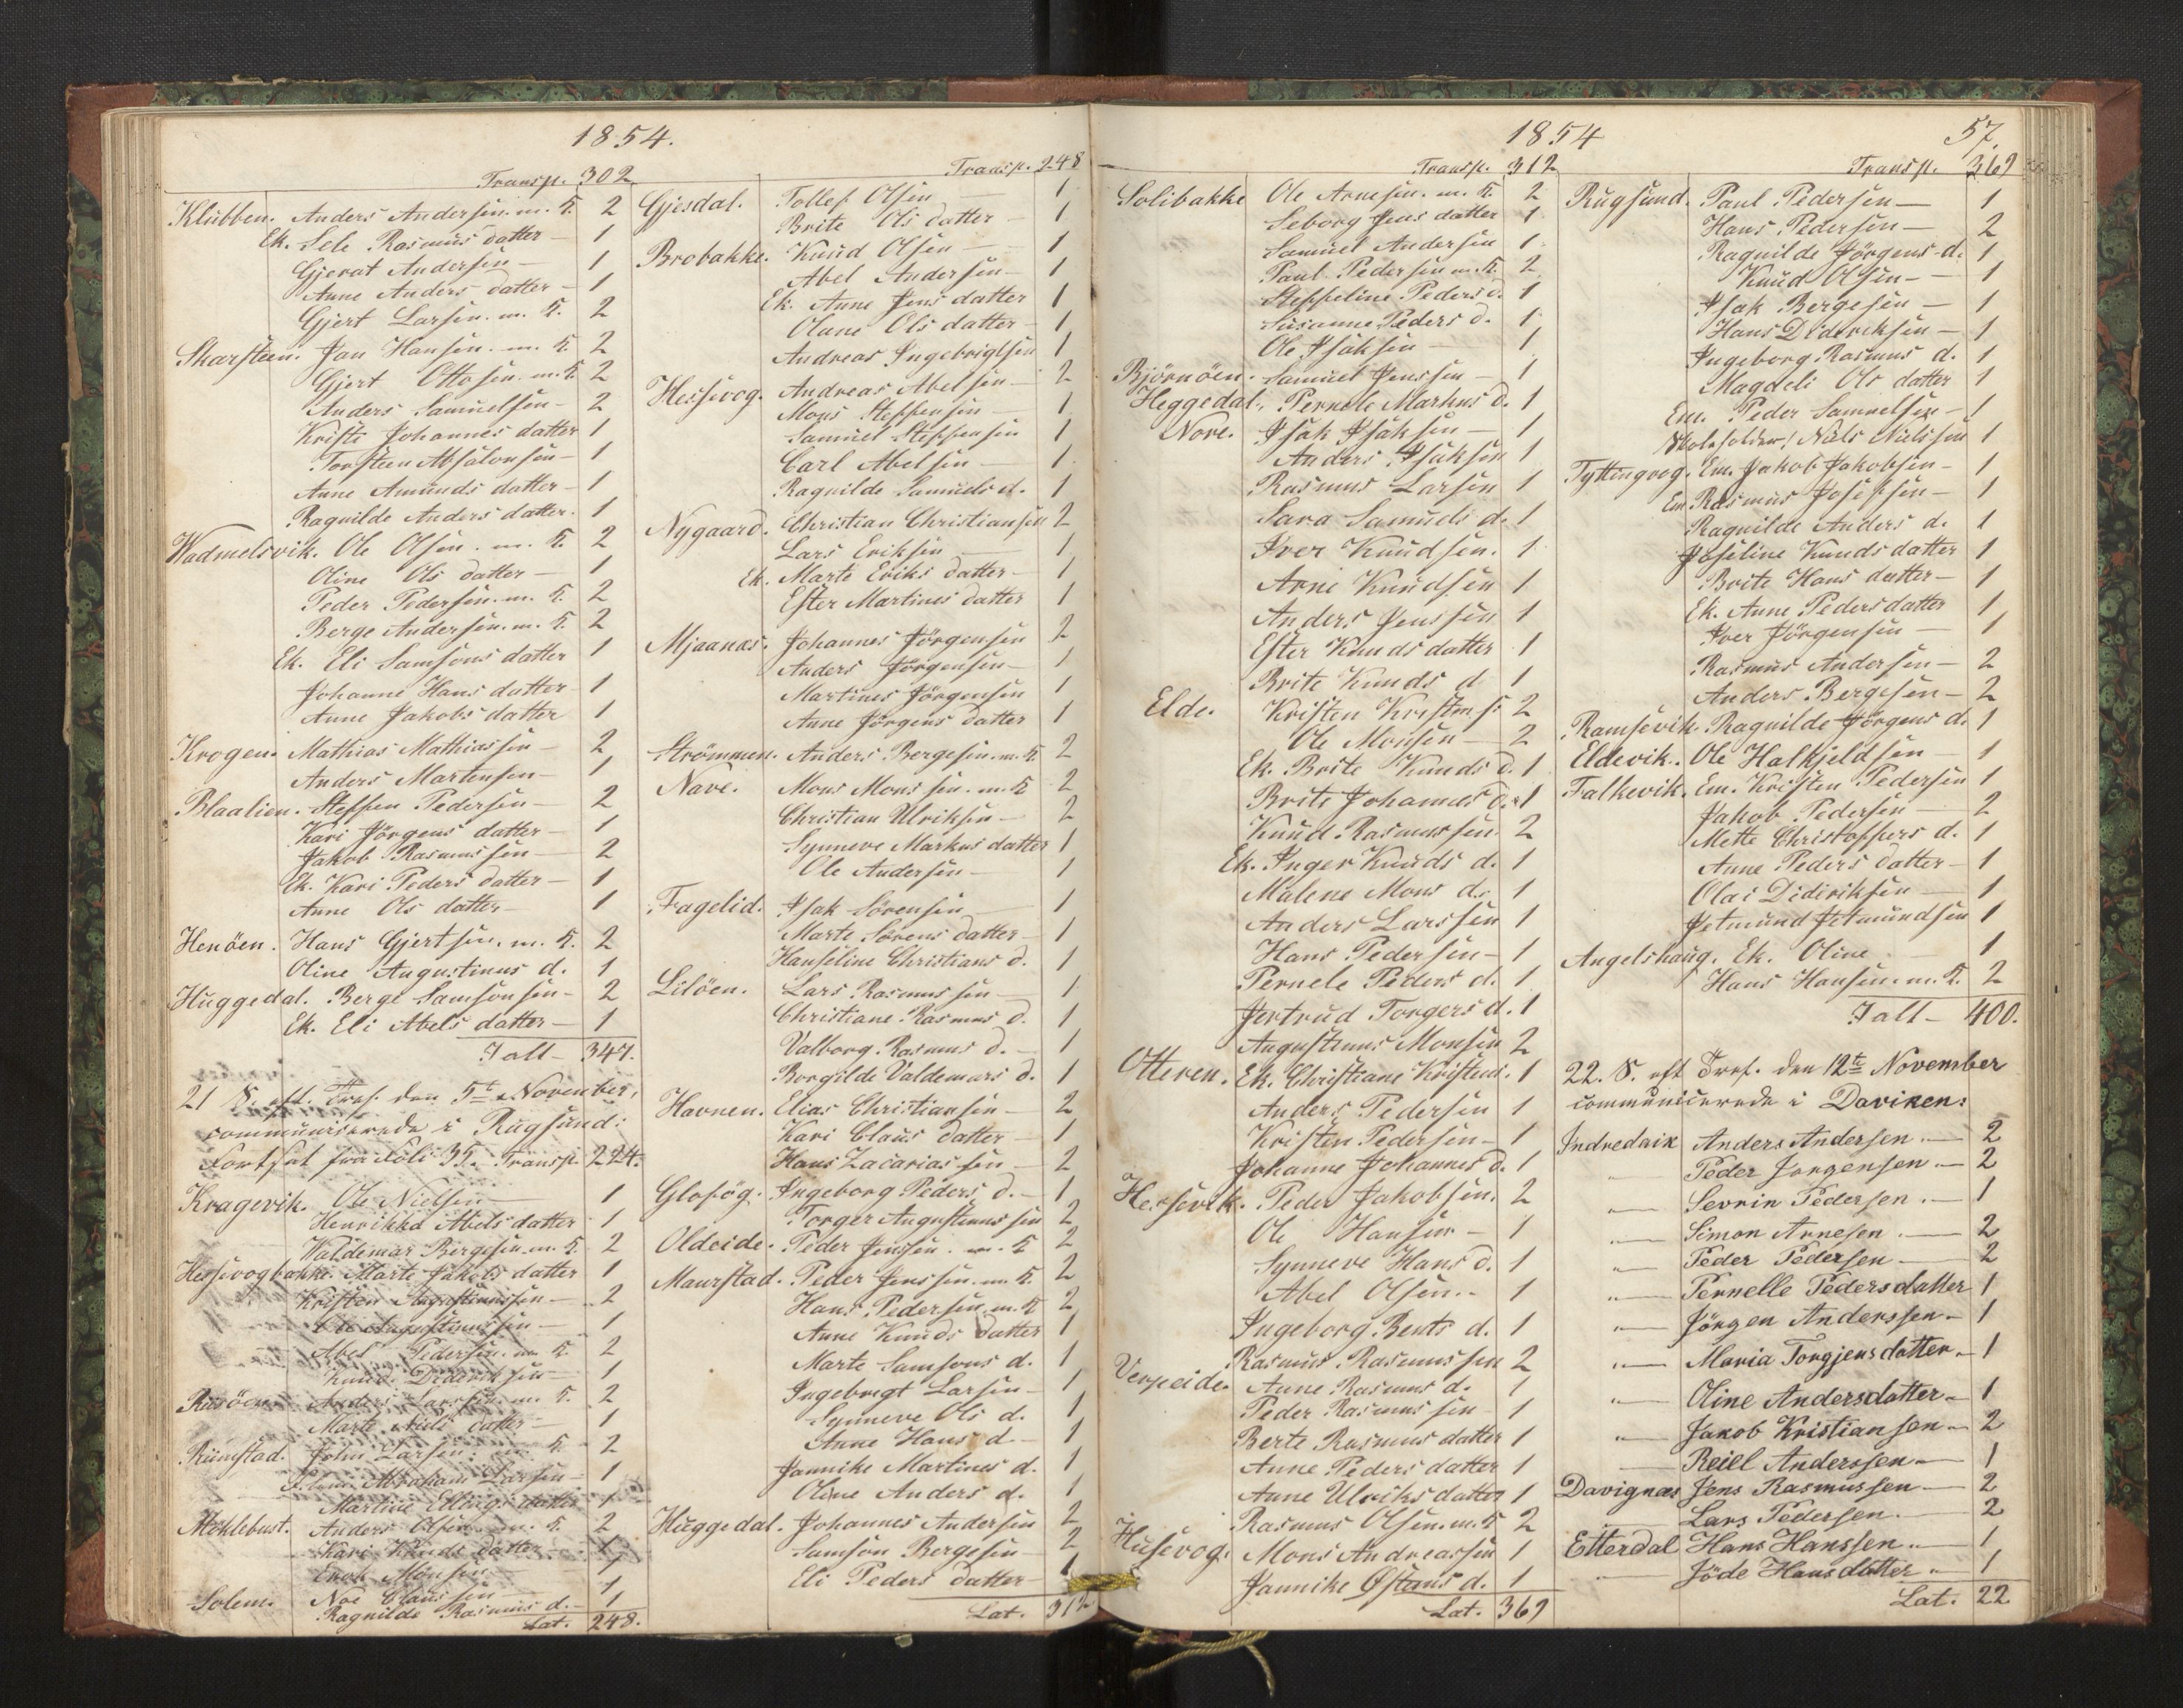 1854.
Transp. 302
Klubben. Anders Andersen. m. K. 2
Ek. Sele Rasmus datter — 1
Gjerat Andersen — 1
Anne Anders datter — 1
Gjert Larsen. m. K. 2
Skarsteen. Jan Hansen. m. K. 2
Gjert Ottosen. m. K. 2
Anders Samuelsen — 2
Kristi Johannes datter 1
Torsteen Absalonsen — 1
Anne Amunds datter — 1
Ragnilde Anders datter. 1
Wadmelsvik. Ole Olsen. m. K. 2
Oline Ols datter — 1
Peder Pedersen. m. K. 2
Berge Andersen. m. K. 2
Ek. Eli Samsons datter 1
Johanne Hans datter — 1
Anne Jakobs datter 1
Krogen. Mathias Mathiassen — 2
Anders Martensen — 1
Blaalien. Steffen Pedersen — 2
Kari Jörgens datter — 1
Jakob Rasmussen — 2
Ek. Kari Peders datter — 1
Anne Ols datter — 1
Henöen. Hans Gjertsen. m. K. 2
Oline Augustinus d. 1
Huggedal. Berge Samsonsen — 2
Ek. Eli Abels datter — 1
Ialt — 347.
21 S. eft. Tref. den 5te November,
communicerede i Rugsund:
Fortsat fra Foli 35. Transp. 224.
Kragevik. Ole Nielsen 1
Henrikka Abels datter 1
Valdemar Bergesen. m. K. 2
Hessevogbakke. Marte Jakobs datter 1
Kristen Augustinussen — 2
Ole Augustinussen — 1
Abel Pedersen. m. K. 2
Knud Dideriksen 1
Risöen. Anders Larssen. m. K. 2
Marte Nils datter — 1
Rimstad. John Larsen. m. K. 2
Abraham Larsen — 1
Martine Ellings datter 1
Möklebust. Anders Olsen. m. K. 2
Kari Knuds datter — 1
Enok Monsen 1
Solem. Noe Claussen 1
Ragnilde Rasmus d. — 1
Lat. 248.
Transp. 248
Gjesdal. Tollef Olsen — 1
Brite Ols datter — 1
Brobakke. Knud Olsen — 1
Abel Andersen — 1
Ek. Anne Jens datter 1
Olane Ols datter — 1
Andreas Ingebrigtsen 1
Hessevog. Andreas Abelsen — 2
Mons Steffensen — 1
Samuel Steffensen 1
Carl Abelsen — 1
Ragnilde Samuels d. 1
Nygaard. Christian Christiansen 2
Lars Eriksen — 1
Ek. Marte Eriks datter — 1
Ester Martines datter 1
Mjaanæs. Johannes Jörgensen 2
Anders Jörgensen — 1
Martines Jörgensen 1
Anne Jörgens datter 1
Strömmen. Anders Bergesen. m. K. 2
Nave. Mons Monssen. m. K. 2
Christian Ulriksen — 2
Synneve Markus datter 1
Ole Andersen — 1
Fagelid. Isak Sörensen 1
Marte Sörens datter — 1
Hanseline Christians d. 1
Lilöen. Lars Rasmussen — 1
Christiane Rasmus d. 1
Valborg Rasmus d. — 1
Borgilde Valdemars d. 1
Havnen. Elias Christiansen — 2
Kari Claus datter — 1
Hans Zacariassen — 2
Glosög. Ingeborg Peders d. — 1
Torger Augustinussen 2
Oldeide. Peder Jenssen. m. K. 2
Maurstad. Peder Jenssen. m. K. 2
Hans Pedersen. m. K. 2
Anne Knuds datter 1
Marte Samsons d. 1
Ingebrigt Larsen — 1
Synneve Ols d. 1
Anne Hans d — 1
Jannike Martines d. 1
Oline Anders d. 1
Huggedal. Johannes Andersen 2
Samson Bergesen 2
Eli Peders datter — 1
Lat. 312
1854
57.
Transp. 312
Solibakke Ole Arnesen. m. K. 2
Seborg Jens datter 1
Samuel Andersen 1
Paul Pedersen m. K. 2
Steffeline Peders d. 1
Susanne Peders d. 1
Ole Isaksen — 1
Björnöen. Samuel Jenssen — 1
Heggedal. Pernele Markus d. 1
Nore. Isak Isaksen — 1
Anders Isaksen 1
Rasmus Larsen 1
Sara Samuels d. 1
Iver Knudsen. 1
Arne Knudsen 1
Anders Jenssen 1
Ester Knuds datter 1
Brite Knuds d 1
Elde. Kristen Kristens: 2
Ole Monsen — 2
Ek. Brite Knuds d. 1
Brite Johannes d. 1
Knud Rasmussen 2
Ek. Inger Knuds d. 1
Malene Mons d. 1
Anders Larssen 1
Hans Pedersen — 1
Pernele Peders d. 1
Jertrud Torgers d. 1
Augustinus Monsen 2
Otteren. Ek. Christiane Kristens. 1
Anders Pedersen 1
Kristen Pedersen — 1
Johanne Johannes d. 1
Hessevik. Peder Jakobsen. 2
Ole Hansen — 1
Synneve Hans d. 1
Abel Olsen. — 1
Ingeborg Bents d. 1
Rasmus Rasmussen 2
Venpeide. Anne Rasmus d. 1
Peder Rasmussen — 1
Berte Rasmus datter 1
Anne Peders datter 1
Anne Ulriks datter 1
Rasmus Olsen. m. K. 2
Husevog. Mons Andreassen 1
Jannike Östens d. 1
Lat. 369
Transp. 369
Rugsund. Paul Pedersen — 1
Hans Pedersen — 2
Ragnilde Jörgens d. 1
Knud Olsen — 1
Isak Bergesen — 1
Hans Dideriksen — 1
Ingeborg Rasmus d. 1
Magdeli Ols datter 1
Em. Peder Samuelsen — 1
Skoleholder / Nils Nielssen 1
Tyttingvog. Em. Jakob Jakobsen — 1
Em Rasmus Josefsen — 1
Ragnilde Anders d. 1
Joseline Knuds datter 1
Brite Hans datter — 1
Ek. Anne Peders datter 1
Iver Jörgensen — 1
Rasmus Andersen — 2
Anders Bergesen — 2
Ramsevik. Ragnilde Jörgens d. 1
Eldevik. Ole Halkjeldsen — 1
Falkevik. Em. Kristen Pedersen 1
Jakob Pedersen — 2
Mette Christoffers d. 1
Anne Peders datter — 1
Olai Dideriksen — 1
Jetmund Jetmundsen 1
Angelshaug. Ek. Oline 1
Hans Hansen. m. K. 2
Ialt — 400.
22. S. eft Tref. den 12te November
communicerede i Daviken:
Indredaik Anders Andersen. — 2
„ — Peder Jorgensen. — 2
„ — Sevrin Pedersen. — 1
„ — Simon Arnesen. — 2
„ — Peder Pedersen — 2
„ — Pernelle Pedersdatter 1
„ — Jörgen Anderssen — 1
„ — Maria Torgjersdatter — 1
„ — Oline Andersdatter — 1
„ — Jakob Kristiansen — 2
— Reiel Anderssen — 1
Davignæs Jens Rasmussen — 2
— Lars Pedersen. — 2
Etterdal Hans Hanssen. — 1
— Jöde Hansdatter — 1
Lat. 22